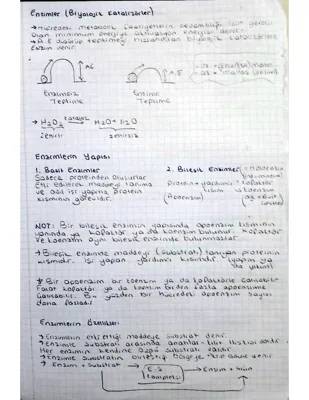 Enzimler (Biyolojik Katalizörler)
→ Hücredeki metabolik faaliyetlerin için gerekli
olan minimum enerjiye aktivasyon enerjisi denir.
→ A.E düşürüp tepkimeyi hızlandıran biyolojik katalizörlere
Enzim denir.
A.E
Enzimsiz
Tepkime
Enzimli
Tepkime
→ H2O2 katalaz
Enzimlerin Yapısı
1. Basit Enzimler
Sadece proteinden oluşurlar
Etki edilerek maddeyi tanıma
ve asıl işi yapma protein
kısmının görevidir.
2. Bileşik Enzimler
Protein + yardımcı kısım
(Apoenzim)
kofaktör
koenzim
NOT: Bir bileşik enzimin yapısında apoenzim kısmının
yanında ya kofaktör ya da koenzim bulunur. Kofaktör
ve koenzim aynı bileşik enzimde bulunmazlar.
→ Bileşik enzimde maddeyi (substratı) tanıyan proteinin
kısmıdır. İşi yapan yardımcı kısımdır.
# Bir apoenzim bir koenzim ya da kofaktörle çalışabilir.
Fakat kofaktör ya da koenzim birden fazla apoenzimle
çalışabilir. Bu yüzden bir hücredeki apoenzim sayısı
daha fazladır.
Enzimlerin Özellikleri
→ Enzimlerin etki ettiği maddeye substrat denir.
→ Enzimle substrat arasında anahtar-kilit ilişkisi vardır.
Her enzimin kendine özgü substratı vardır.
→ Enzimle substratın birleştiği bölgeye aktif bölge denir.
→ Enzim + Substrat → E.S kompleksi → Enzim + Ürün